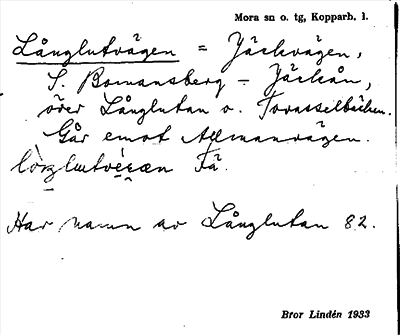 Mora sn o. tg, Kopparb. l.
Långlutvägen = Jäckvägen,
S. Bomansberg – Jäckån,
över Långlutan o. Torasselbäcken.
Går emot Allmanvägen.
Fä.
Har namn av Långlutan 82.
Bror Lindén 1933